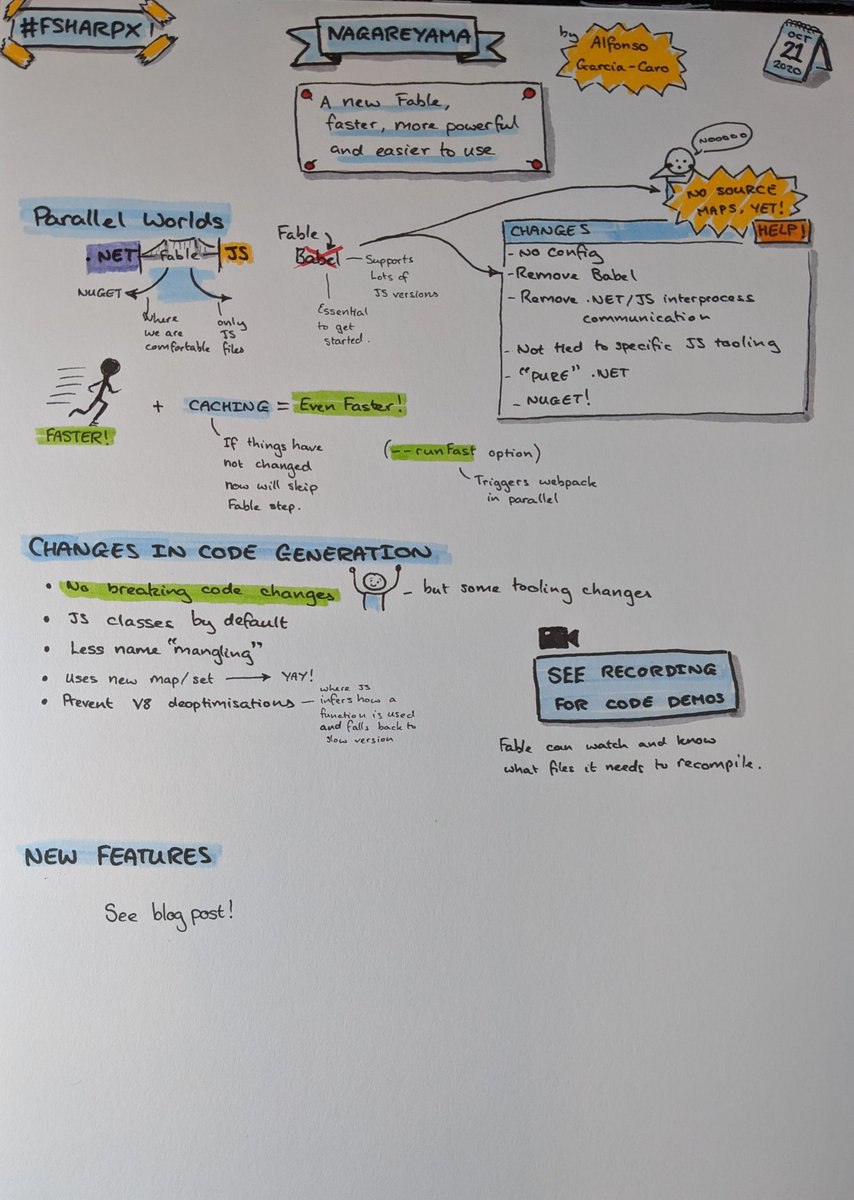 #FSHARPX!
NAGAREYAMA
by
Alfonso
Garcia-Caro
OCT
21
2020
A new Fable,
faster, more powerful
and easier to use
NOOOOO
NO SOURCE
MAPS, YET!
Parallel Worlds
.NET
Fable
JS
NUGET
Where
we are
comfortable
only
JS
files
Fable
Babel
Supports
Lots of
JS versions
Essential
to get
started.
CHANGES
HELP!
- No config
- Remove Babel
- Remove .NET/JS interprocess
communication
- Not tied to specific JS tooling
- "PURE" .NET
- NUGET!
FASTER!
+ CACHING = Even Faster!
If things have
not changed
now will skip
Fable step.
(--runFast option)
Triggers webpack
in parallel
CHANGES IN CODE GENERATION
• No breaking code changes - but some tooling changes
• JS classes by default
• Less name "mangling"
• Uses new map/set → YAY!
• Prevent V8 deoptimisations
where JS
infers how a
function is used
and falls back to
slow version
SEE RECORDING
FOR CODE DEMOS
Fable can watch and know
what files it needs to recompile.
NEW FEATURES
See blog post!